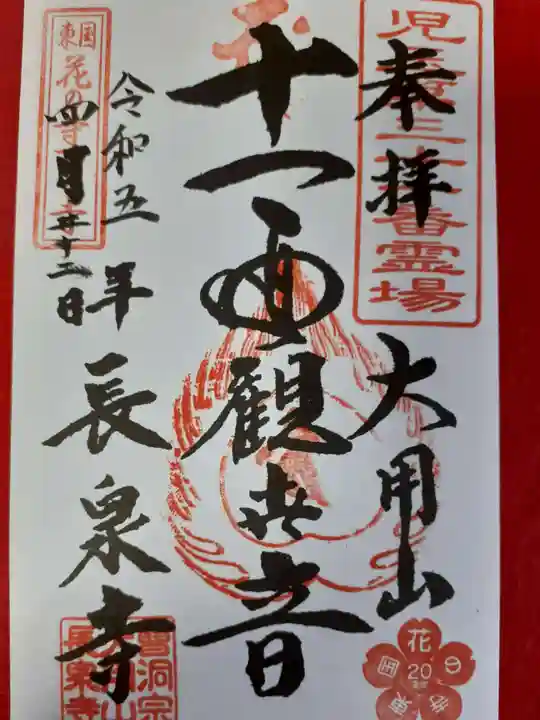 奉拝
大用山
十一面観世音
令和五年
四月二十二日
長泉寺
児玉三十三番霊場
東国
花の寺
曹洞宗
大用山
長泉寺
花
20